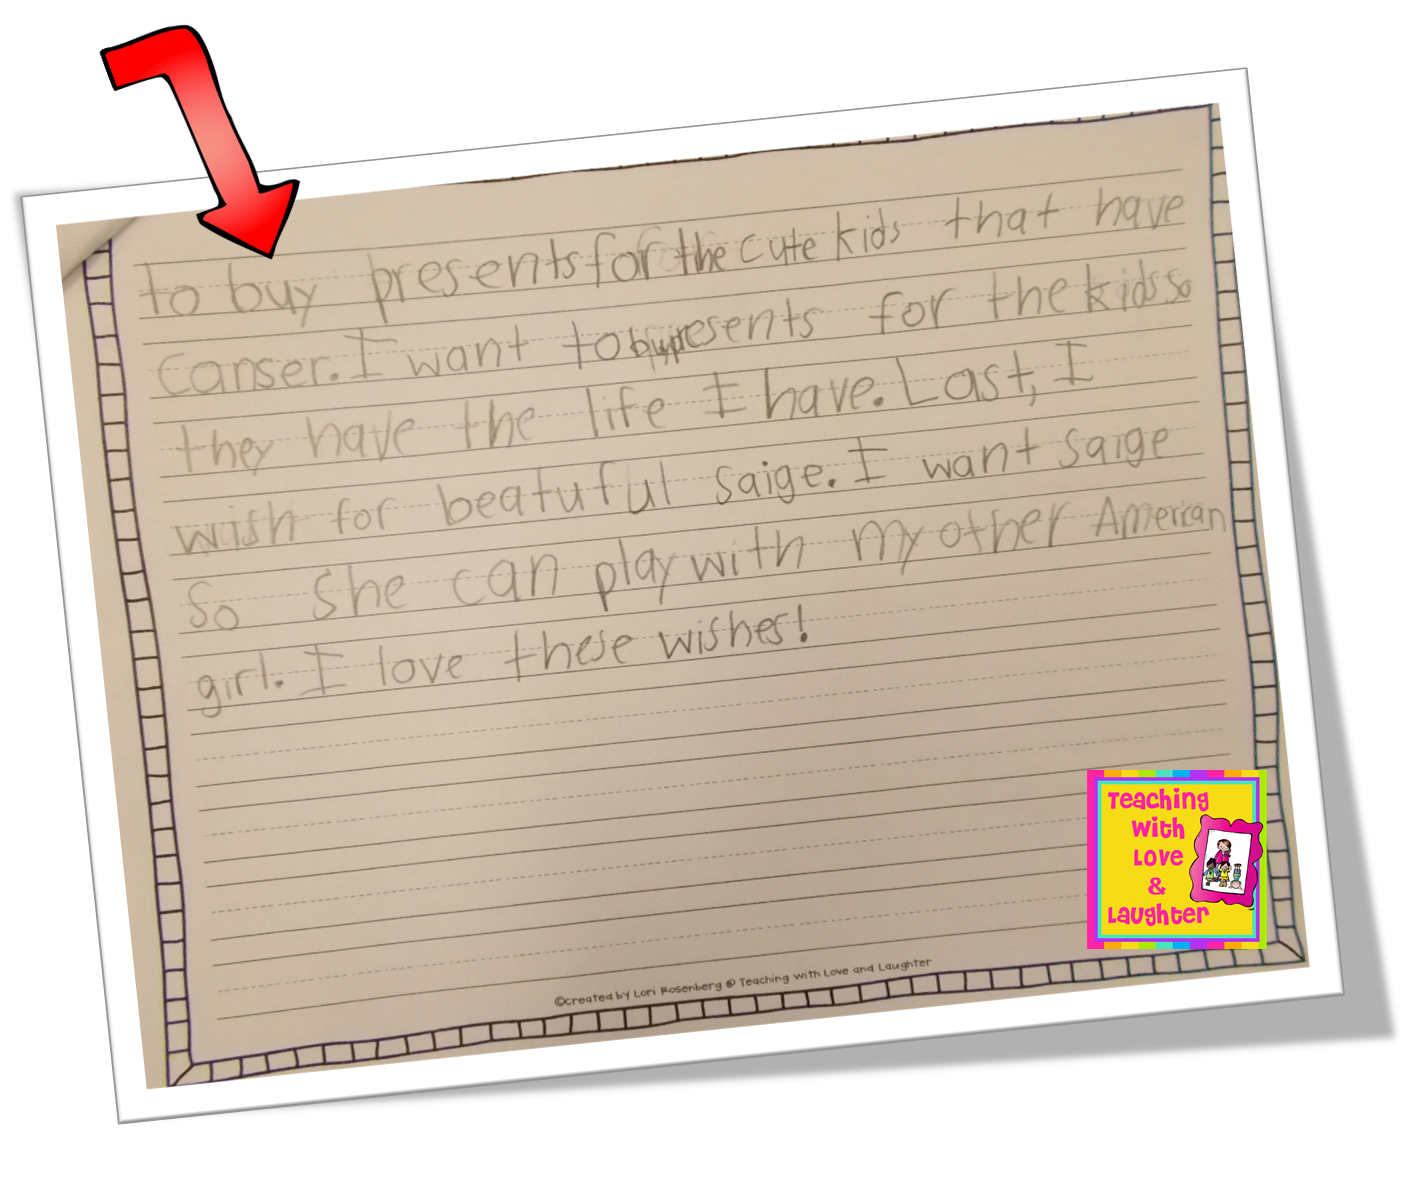 to buy presents for the cute kids that have
canser. I want to buy presents for the kids so
they have the life I have. Last, I
wish for beatuful saige. I want saige
so she can play with my other American
girl. I love these wishes!
©created by Lori Rosenberg @ Teaching with Love and Laughter
Teaching
with
Love
&
Laughter